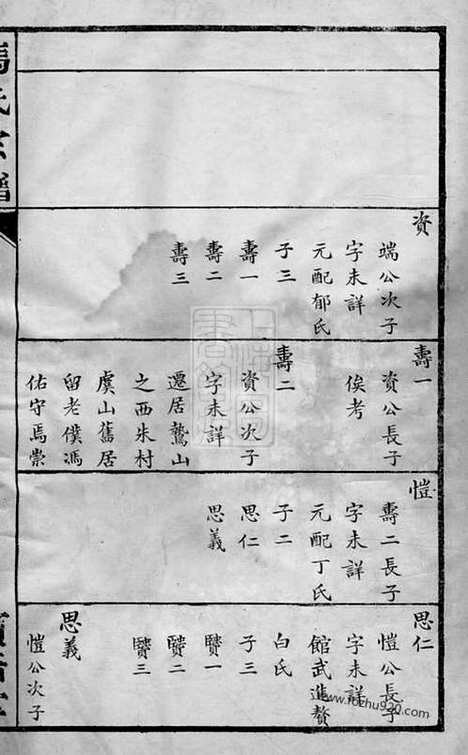 資
端公次子
字未詳
元配郁氏
子三
壽一
壽二
壽三
壽一
資公長子
俟考
壽二
資公次子
字未詳
遷居鷲山
之西朱村
虞山舊居
留老僕馮
佑守焉崇
愷
壽二長子
字未詳
元配丁氏
子二
思仁
思義
思仁
愷公長子
字未詳
館武進嫠
白氏
子三
贒一
贒二
贒三
思義
愷公次子
氏宗譜
www.fozhu920.com